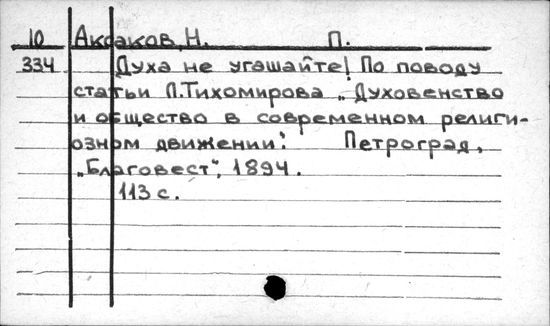 10 Аксаков, Н. П.
334 Духа не угашайте! По поводу
статьи Л.Тихомирова „Духовенство
и общество в современном религи-
озном движении". Петроград,
„Благовест", 1894.
113 с.